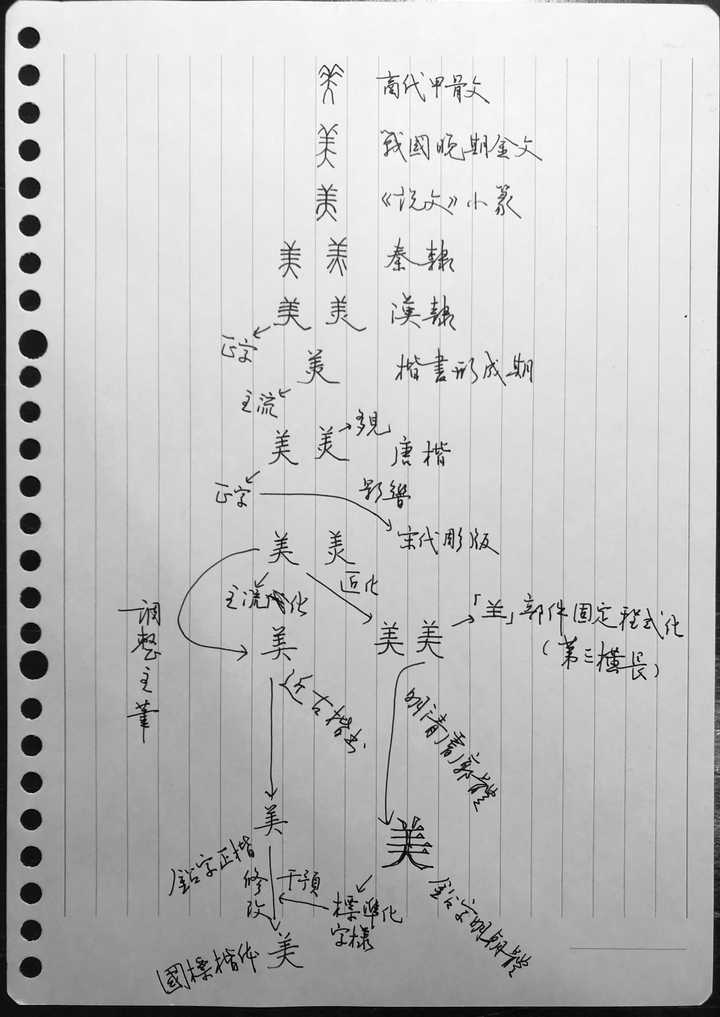 美 商代甲骨文
美 戰國晚期金文
美 《说文》小篆
美 美 秦隸
美 美 漢隸
正字
美 楷書形成期
主流
美 美 多見 唐楷
正字 影響
美 美 宋代彫版
主流 化 匠化
調整主筆
美 美 美 「𦍌」部件固定程式化
(第三橫長)
近古楷书
明清書寫體
美 美
鉛字正楷 修改 干預 標準化
字樣
鉛字明朝體
國標楷体 美